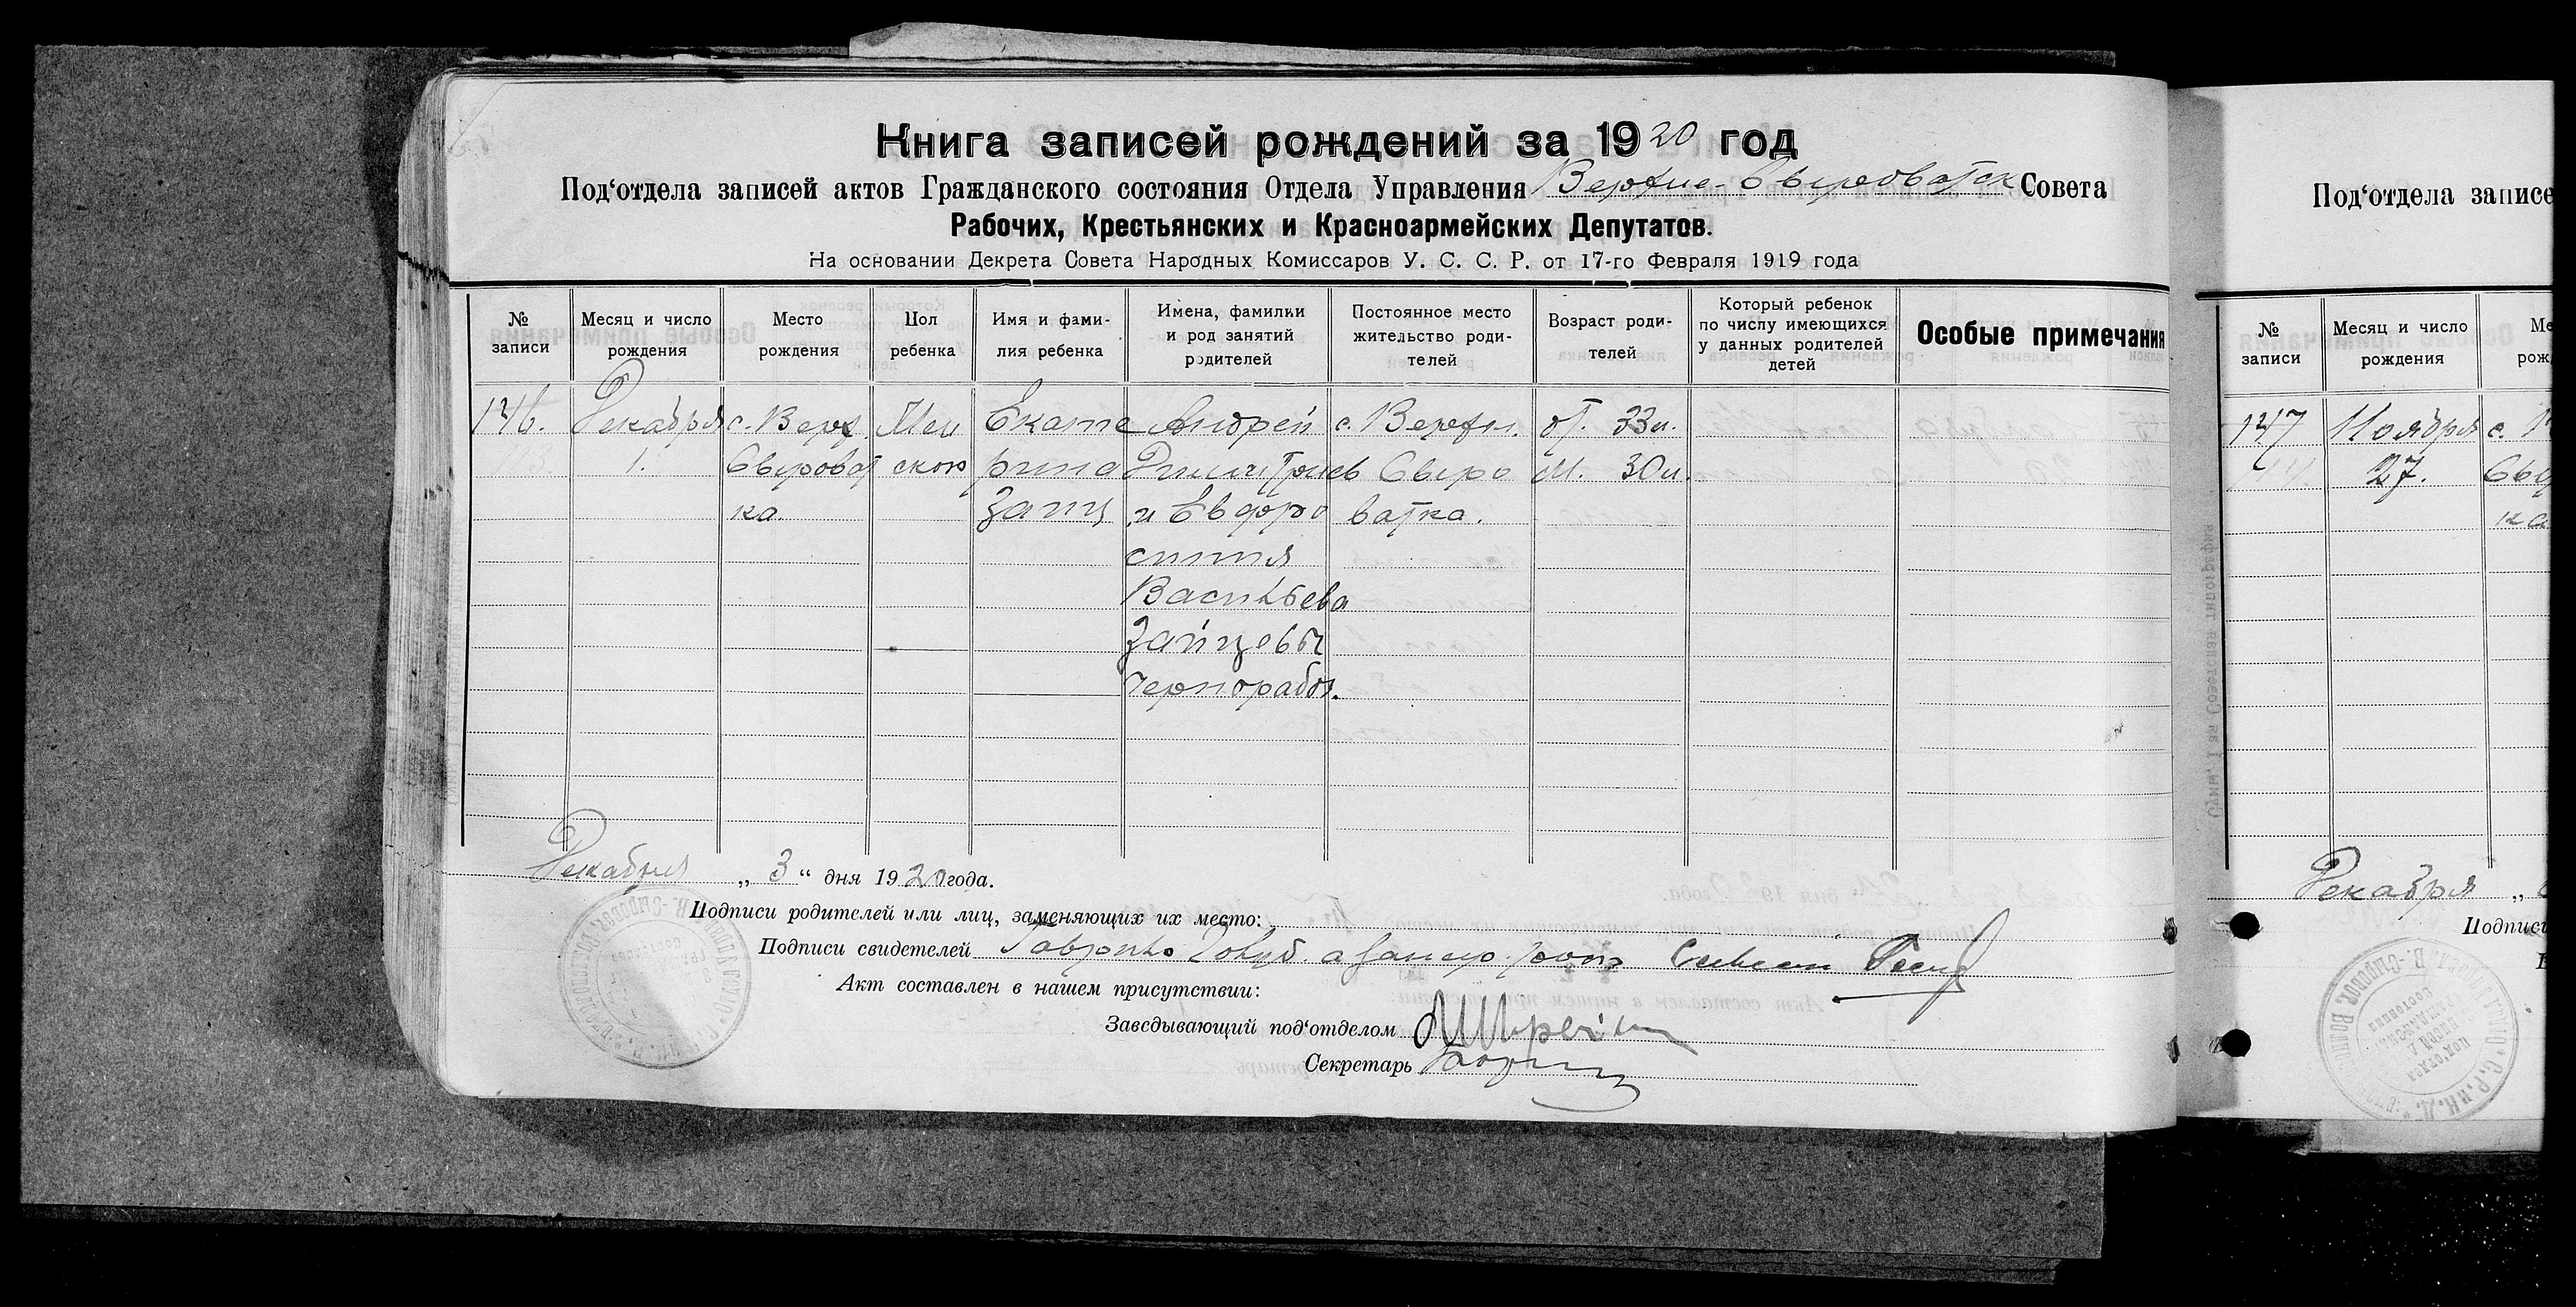 Книга записей рождений за 1920 год
Под‘отдела записей актов Гражданского состояния Отдела Управления Верхне-Сыроватск Совета
Рабочих, Крестьянских и Красноармейских Депутатов.
На основании Декрета Совета Народных Комиссаров У. С. С. Р. от 17-го Февраля 1919 года
№ записи
Месяц и число рождения
Место рождения
Пол ребенка
Имя и фами-
лия ребенка
Имена, фамилии
и род занятий
родителей
Постоянное место
жительство роди-
телей
Возраст роди-
телей
Который ребенок
по числу имеющихся
у данных родителей
детей
Особые примечания
146.
Декабря
1.
с. Верх.
Сыроват
ка.
Жен
ского
Екате
рина
Заиц
Андрей
Димитриев
и Евфро
синия
Васильева
Зайцевы
Чернорабоч.
с. Верхн.
Сыро
ватка.
от. 33 л.
м. 30 л.
Декабря „ 3 “ дня 1920 года.
Подписи родителей или лиц, заменяющих их место:
Подписи свидетелей
Акт составлен в нашем присутствии:
Заведывающий под‘отделом
Секретарь
Под‘отдела записе
№ записи
Месяц и число рождения
Ме
рож
147
Ноября
27.
с.
Сы
ка
Декабря „
Подписи